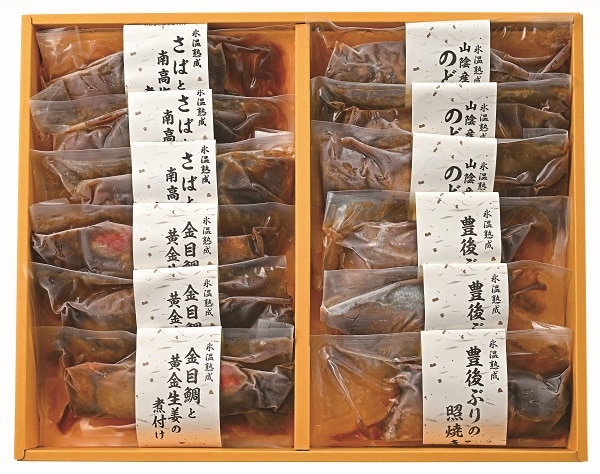 氷温熟成
さばと
南高
氷温熟成
さばと
南高
氷温熟成
さばと
南高
氷温熟成
金目鯛と
黄金生
氷温熟成
金目鯛
黄金
氷温熟成
金目鯛と
黄金生姜の
煮付け
氷温熟成
山陰産
のど
氷温熟成
山陰産
のど
氷温熟成
山陰産
のど
氷温熟成
豊後ぶ
氷温熟成
豊後ぶ
氷温熟成
豊後ぶりの
照焼き